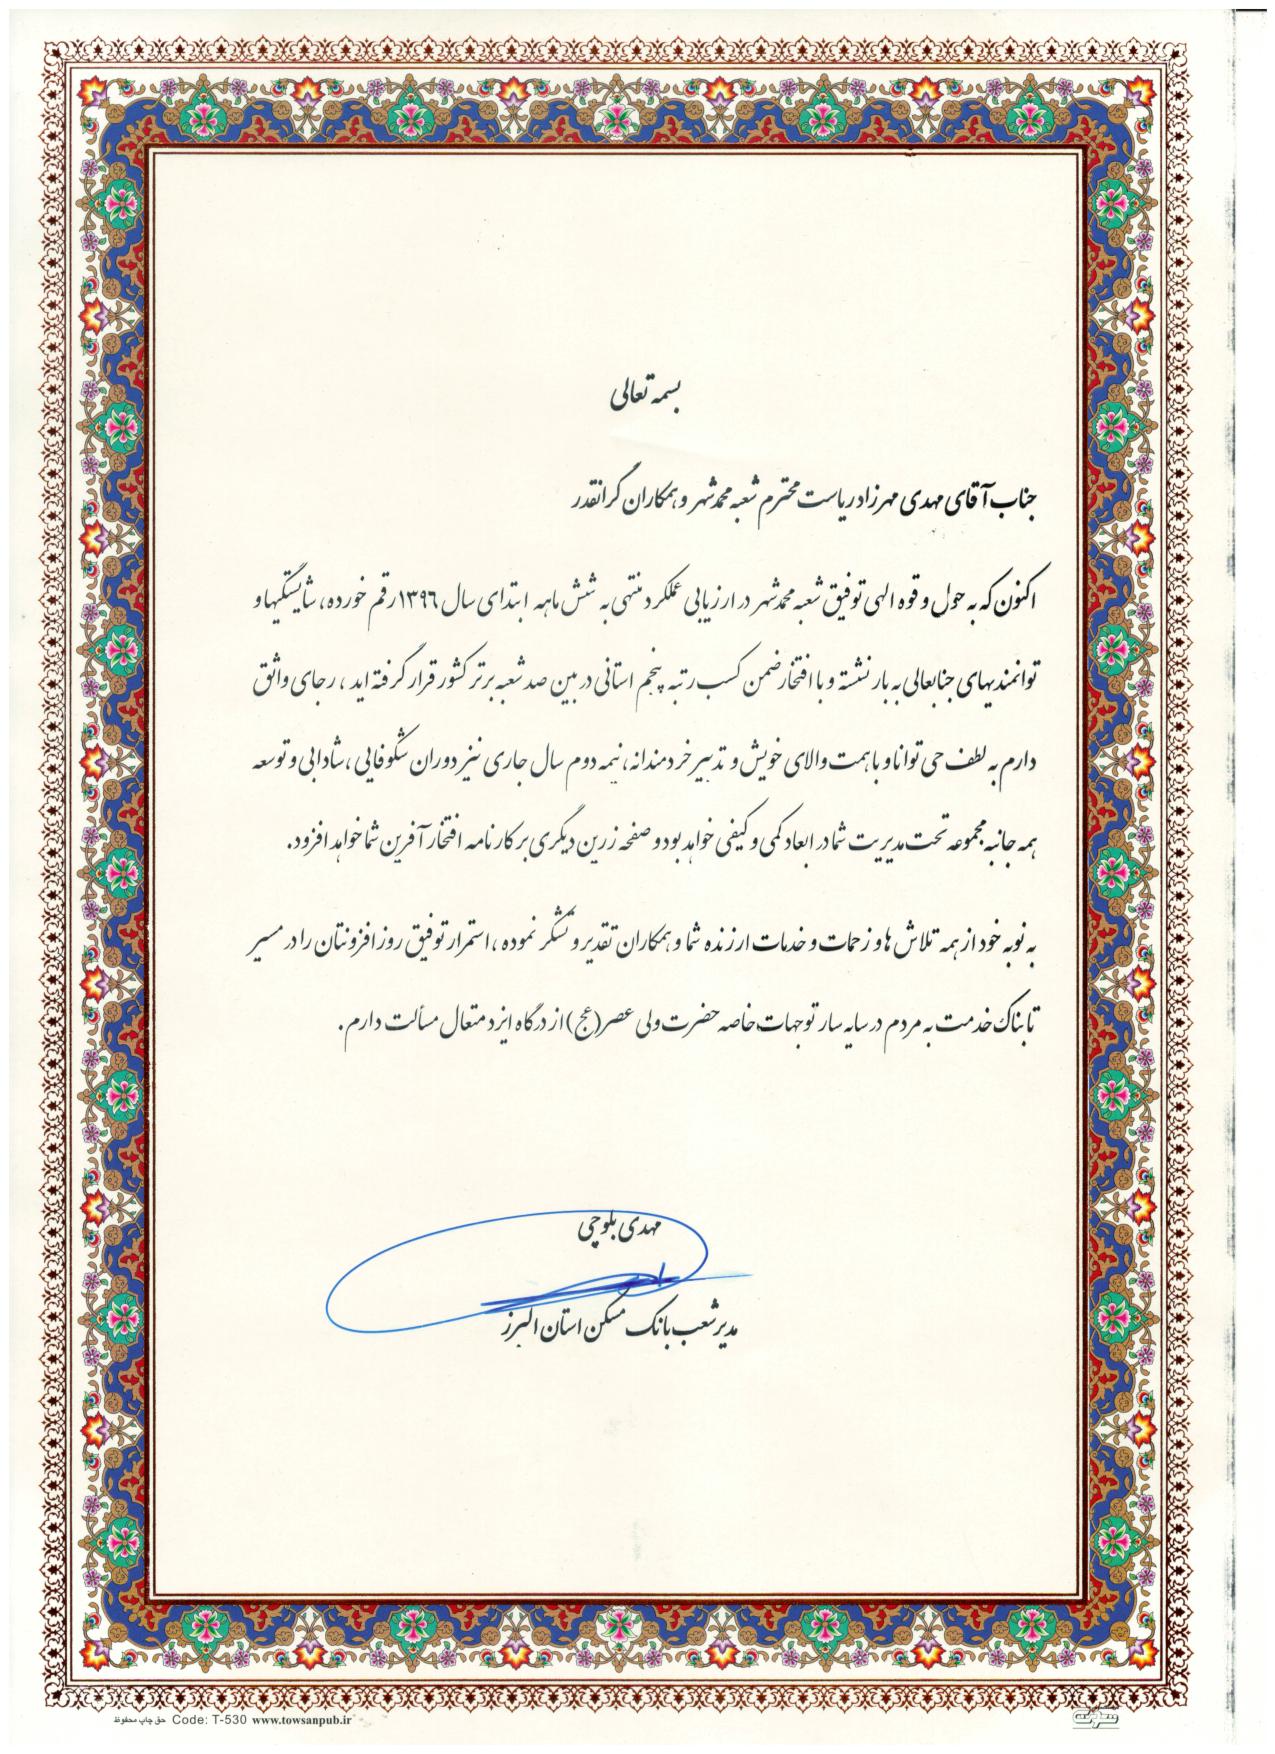 بسمه تعالی
جناب آقای مهدی مهرزاد ریاست محترم شعبه محمدشهر و همکاران گرانقدر
اکنون که به حول و قوه الهی توفیق شعبه محمدشهر در ارزیابی عملکرد منتهی به شش ماهه ابتدای سال ۱۳۹۶ رقم خورده، شایستگیها و
توانمندیهای جنابعالی به بار نشسته و با افتخار ضمن کسب رتبه پنجم استانی در بین صد شعبه برتر کشور قرار گرفته اید، رجای واثق
دارم به لطف حی توانا و با همت والای خویش و تدبیر خردمندانه، نیمه دوم سال جاری نیز دوران شکوفایی، شادابی و توسعه
همه جانبه مجموعه تحت مدیریت شما در ابعاد کمی و کیفی خواهد بود و صفحه زرین دیگری بر کارنامه افتخار آفرین شما خواهد افزود.
به نوبه خود از همه تلاش ها و زحمات و خدمات ارزنده شما و همکاران تقدیر و تشکر نموده، استمرار توفیق روز افزونتان را در مسیر
تابناک خدمت به مردم در سایه سار توجهات خاصه حضرت ولی عصر(عج) از درگاه ایزد متعال مسألت دارم.
مهدی بلوچی
مدیر شعب بانک مسکن استان البرز
حق چاپ محفوظ Code: T-530 www.towsanpub.ir